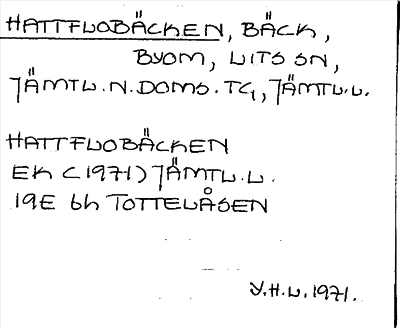 HATTFLOBÄCKEN, BÄCK,
BYOM, LITS SN,
JÄMTL.N.DOMS.TG, JÄMTL.L.
HATTFLOBÄCKEN
EK (1971) JÄMTL.L.
19E 6h TOTTELÅSEN
Y.H.L. 1971.